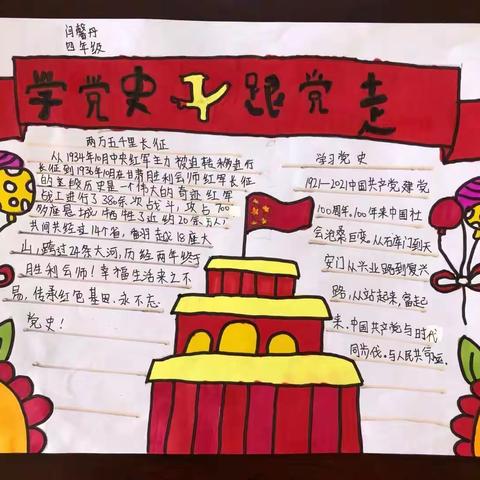 闫馨丹
四年级
学党史 跟党走
两万五千里长征
从1934年10月中央红军主力被迫转移进行
长征到1936年10月在甘肃胜利会师红军长征
的英蛟历史是一个伟大的奇迹红军
战士进行了380余次战斗,攻占700
多座县城,牺牲了近约20余万人,
共间共经过14个省,翻越18座大
山,跨过24条大河,历经两年终于
胜利会师!幸福生活来之不
易,传承红色基因、永不忘
党史!
学习党史
1921-2021中国共产党,建党
100周年,100年来中国社
会沧桑巨变。从石库门到天
安门从兴业路到复兴
路,从站起来,富起
来,中国共产党与时代
同为伐。与人民共命运。